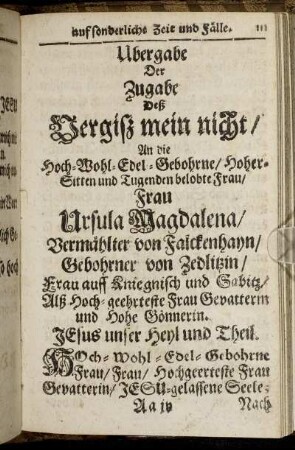 auf sonderliche Zeit und Fälle. 111
Ubergabe
Der
Zugabe
Deß
Vergiß mein nicht/
An die
Hoch-Wohl-Edel-Gebohrne/ Hoher-
Sitten und Tugenden belobte Frau/
Frau
Ursula Magdalena/
Vermählter von Faickenhayn/
Gebohrner von Zedlitzin/
Frau auff Kniegnisch und Sabitz/
Alß Hoch-geehrteste Frau Gevatterin
und Hohe Gönnerin.
JEsus unser Heyl und Theil.
HOch-Wohl-Edel-Gebohrne
Frau/ Frau/ Hochgeerteste Frau
Gevatterin/ JESU-gelassene Seele;
Aa iv Nach